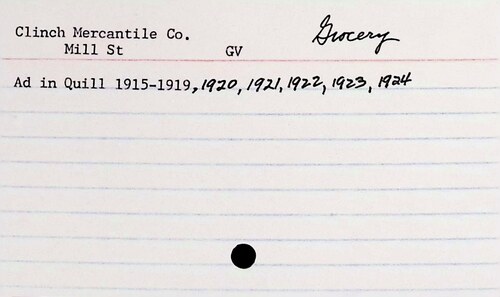 Clinch Mercantile Co. Grocery
Mill St GV
Ad in Quill 1915-1919, 1920, 1921, 1922, 1923, 1924